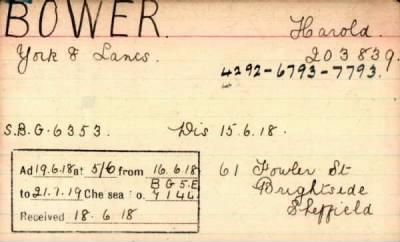 BOWER. Harold.
York & Lancs. 203839.
4292-6793-7793.
S.B.G. 6353. Dis 15.6.18.
Ad 19.6.18 at 5/6 from 16.6.18
to 21.7.19 Chelsea No.
B G S.E
7146
Received 18.6.18
61 Fowler St
Brightside
Sheffield